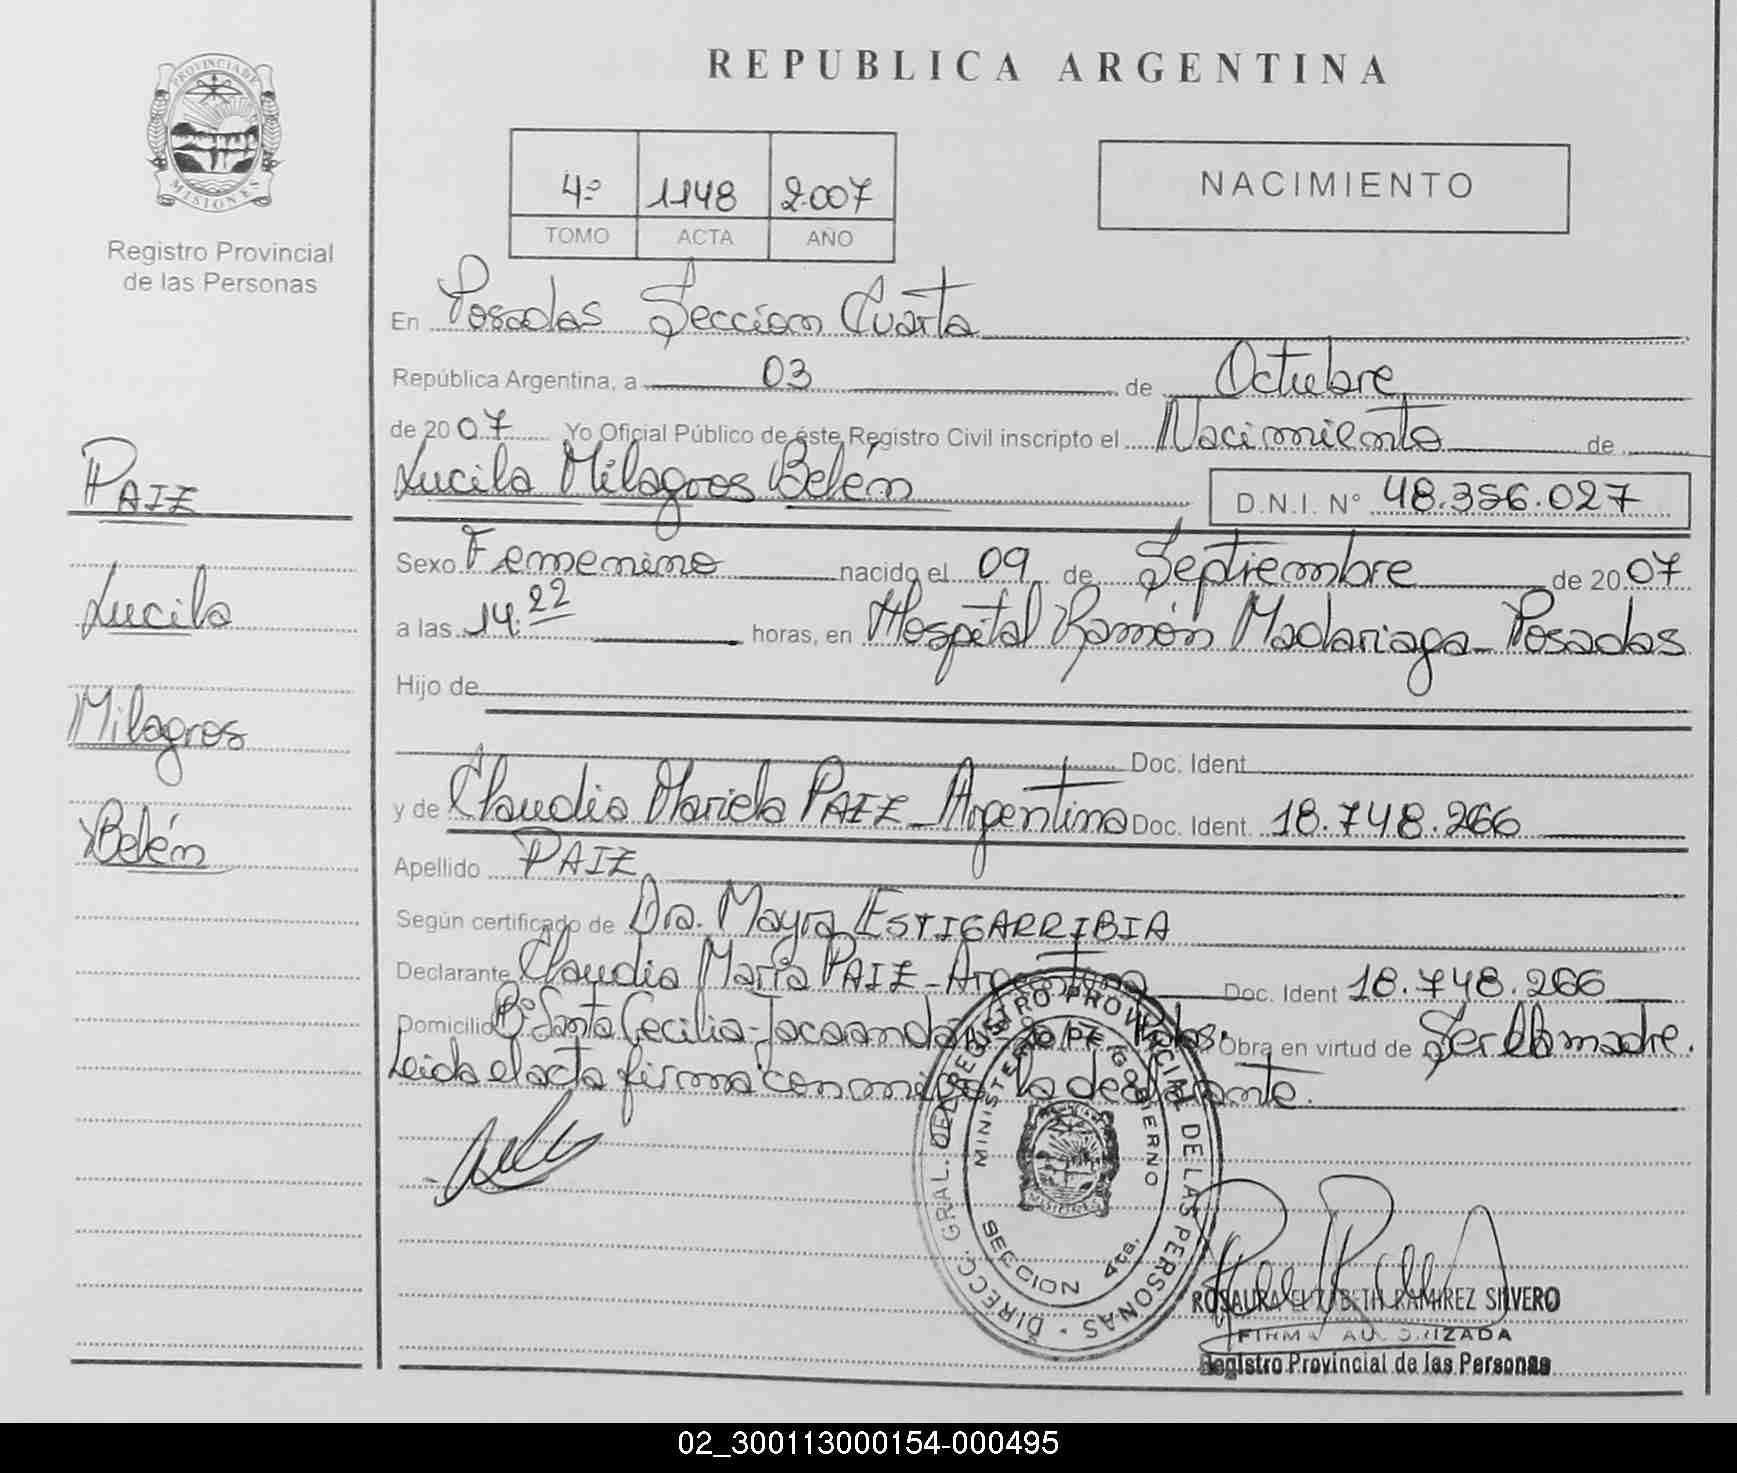 PROVINCIA DE
MISIONES
Registro Provincial
de las Personas
PAIZ
Lucila
Milagros
Belén
REPUBLICA ARGENTINA
4º 1148 2.007
TOMO ACTA AÑO
NACIMIENTO
En Posadas Sección Cuarta
República Argentina, a 03 de Octubre
de 2007 Yo Oficial Público de éste Registro Civil inscripto el Nacimiento de
Lucila Milagros Belén D.N.I. Nº 48.356.027
Sexo Femenino nacido el 09 de Septiembre de 2007
a las 14:22 horas, en Hospital Ramón Madariaga - Posadas
Hijo de
Doc. Ident
y de Claudia Mariela PAIZ - Argentina Doc. Ident 18.748.266
Apellido PAIZ
Según certificado de Dra. Mayra ESTIGARRIBIA
Declarante Claudia María PAIZ - Argentina Doc. Ident 18.748.266
Domicilio Bº Santa Cecilia - Obra en virtud de Ser la madre.
Leída el acta firma conmigo la declarante.
DIRECC. GRAL. DEL REGISTRO PROVINCIAL DE LAS PERSONAS
MINISTERIO DE GOBIERNO
SECCION 4ta.
MISIONES
ROSAURA ELIZABETH RAMIREZ SILVERO
FIRMA AUTORIZADA
Registro Provincial de las Personas
02_300113000154-000495